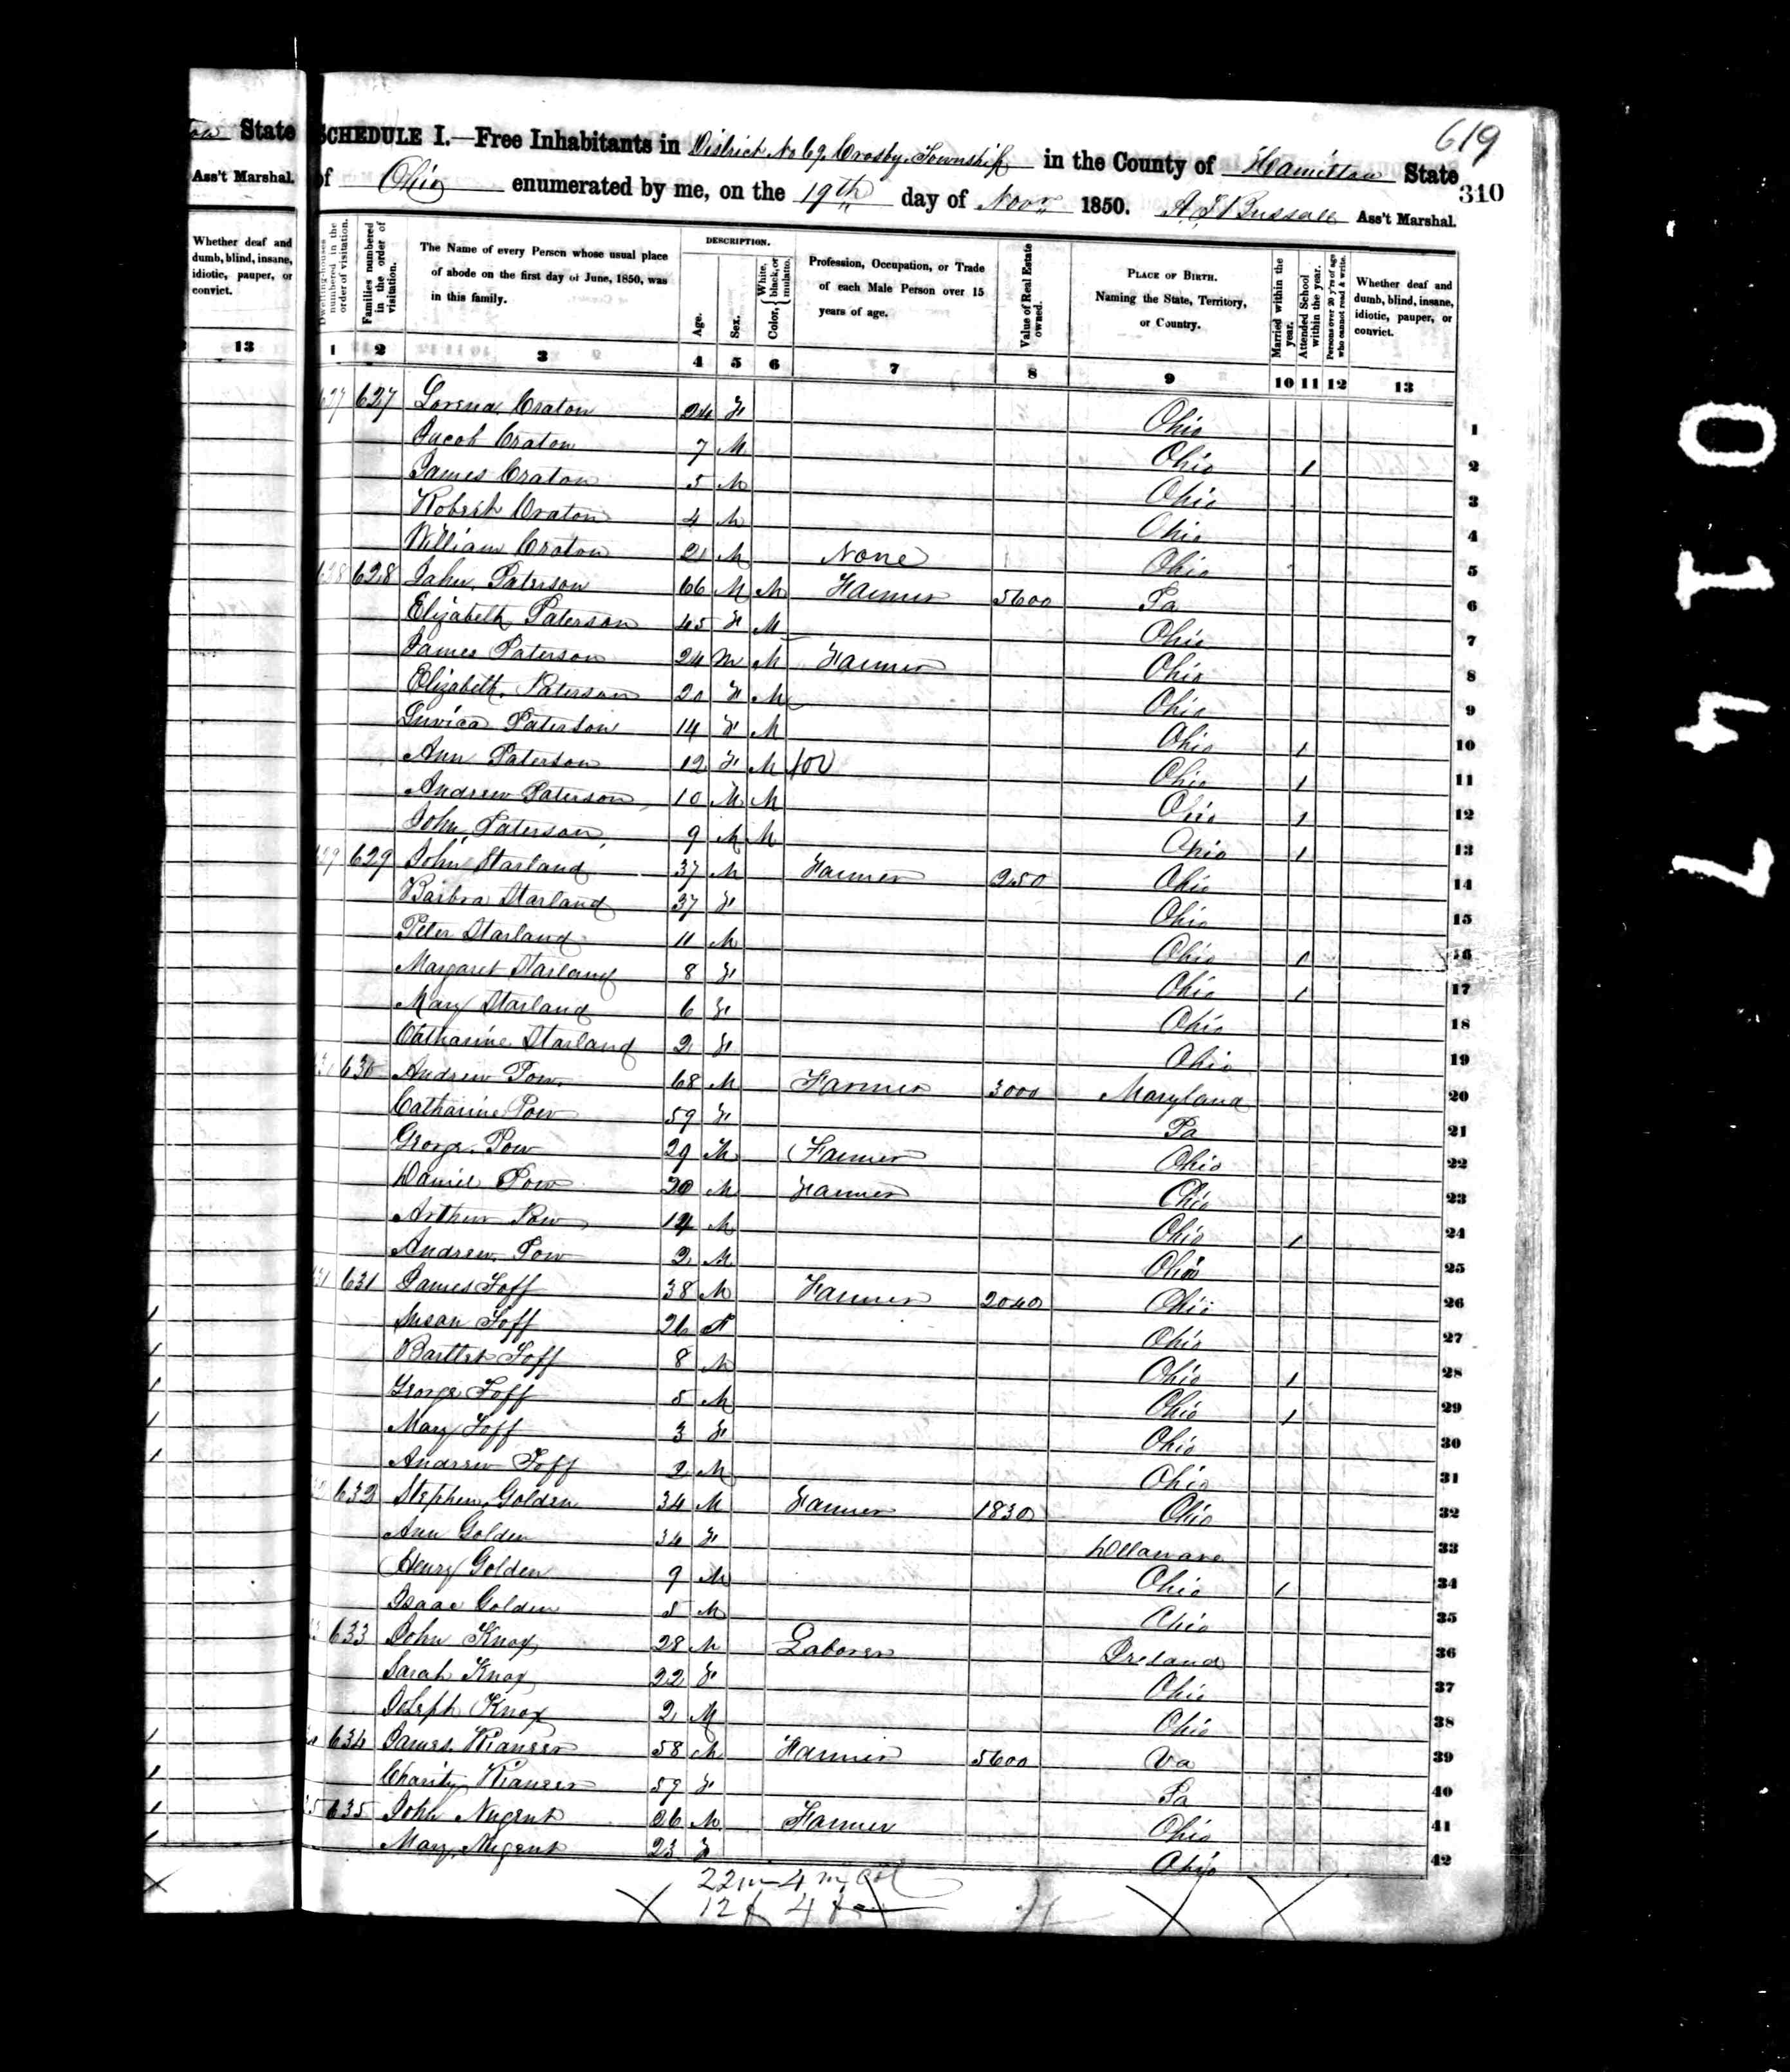 619
State
SCHEDULE I.—Free Inhabitants in District No 69, Crosby Township in the County of Hamilton State
310
Ass't Marshal.
of Ohio enumerated by me, on the 19th day of Novr 1850. Ass't Marshal.
Whether deaf and dumb, blind, insane, idiotic, pauper, or convict.
Dwelling-houses numbered in the order of visitation.
Families numbered in the order of visitation.
The Name of every Person whose usual place of abode on the first day of June, 1850, was in this family.
DESCRIPTION.
Age.
Sex.
Color, { White, black, or mulatto.
Profession, Occupation, or Trade of each Male Person over 15 years of age.
Value of Real Estate owned.
PLACE OF BIRTH.
Naming the State, Territory, or Country.
Married within the year.
Attended School within the year.
Persons over 20 y'rs of age who cannot read & write.
Whether deaf and dumb, blind, insane, idiotic, pauper, or convict.
13 1 2 3 4 5 6 7 8 9 10 11 12 13
627 627 Lorena Craton 24 F Ohio 1
Jacob Craton 7 M Ohio 1 2
James Craton 5 M Ohio 3
Robert Craton 4 M Ohio 4
William Craton 21 M None Ohio 5
628 628 John Paterson 66 M M Farmer 5600 Pa 6
Elizabeth Paterson 45 F M Ohio 7
James Paterson 24 M M Farmer Ohio 8
Elizabeth Paterson 20 F M Ohio 9
Luvica Paterson 14 F M Ohio 1 10
Ann Paterson 12 F M Ohio 1 11
Andrew Paterson 10 M M Ohio 1 12
John Paterson 9 M M Ohio 1 13
629 629 John Starland 37 M Farmer 250 Ohio 14
Barbra Starland 37 F Ohio 15
Peter Starland 11 M Ohio 1 16
Margaret Starland 8 F Ohio 1 17
Mary Starland 6 F Ohio 18
Catharine Starland 2 F Ohio 19
630 Andrew Pow 68 M Farmer 3000 Maryland 20
Catharine Pow 59 F Pa 21
George Pow 29 M Farmer Ohio 22
Daniel Pow 20 M Farmer Ohio 23
Arthur Pow 14 M Ohio 1 24
Andrew Pow 2 M Ohio 25
631 631 James Goff 38 M Farmer 2040 Ohio 26
Susan Goff 26 F Ohio 27
Barttet Goff 8 M Ohio 1 28
George Goff 5 M Ohio 1 29
Mary Goff 3 F Ohio 30
Andrew Goff 2 M Ohio 31
632 Stephen Golden 34 M Farmer 1830 Ohio 32
Ann Golden 34 F Dellaware 33
Henry Golden 9 M Ohio 1 34
Isaac Golden 5 M Ohio 35
633 John Knox 28 M Laborer Ireland 36
Sarah Knox 22 F Ohio 37
Joseph Knox 2 M Ohio 38
634 James 58 M Farmer 5600 Va 39
Charity 59 F Pa 40
635 John Nugent 26 M Farmer Ohio 41
Mary Nugent 23 F Ohio 42
22 m 4 m Col
12 f 4 f
0147